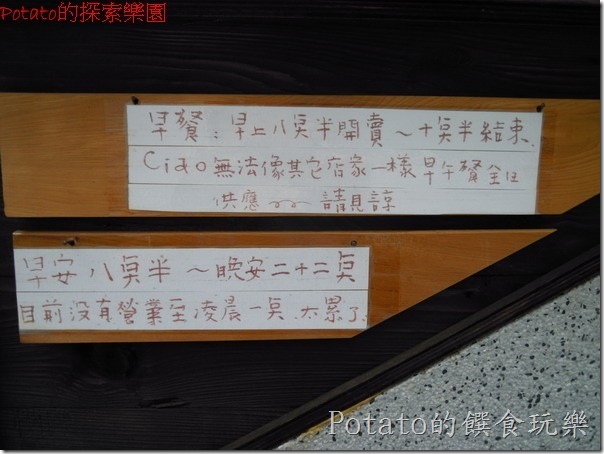 Potato的探索樂園
早餐：早上八點半開賣～十點半結束.
Ciao無法像其它店家一樣早午餐全日
供應 請見諒
早安八點半～晚安二十二點
目前沒有營業至凌晨一點.太累了.
Potato的饌食玩樂